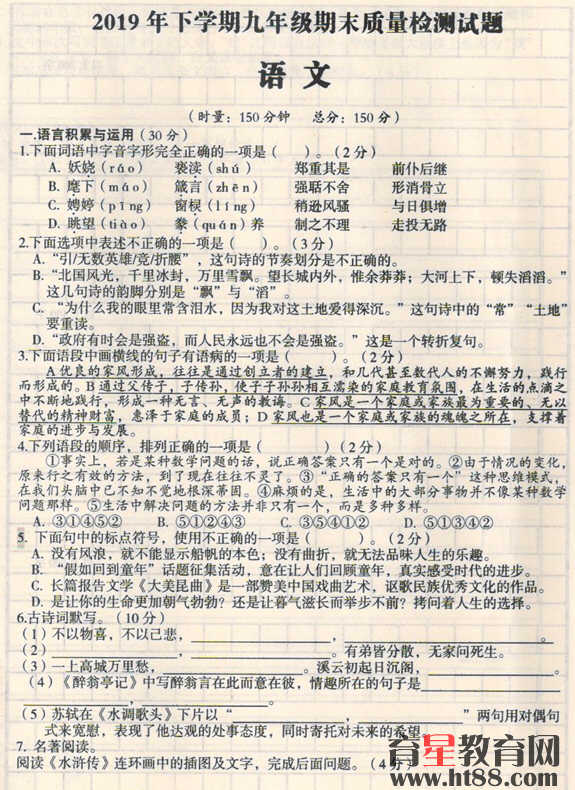 2019年下学期九年级期末质量检测试题
语 文
(时量：150分钟 总分：150分)
一.语言积累与运用(30分)
1.下面词语中字音字形完全正确的一项是( )。(2分)
A. 妖娆(ráo) 亵渎(shú) 郑重其是 前仆后继
B. 麾下(máo) 箴言(zhēn) 强聒不舍 形消骨立
C. 娉婷(pīng) 窗棂(líng) 稍逊风骚 与日俱增
D. 眺望(tiào) 豢(quán)养 制之不理 走投无路
2.下面选项中表述不正确的一项是( )。(3分)
A.“引/无数英雄/竞/折腰”，这句诗的节奏划分是不正确的。
B.“北国风光，千里冰封，万里雪飘。望长城内外，惟余莽莽；大河上下，顿失滔滔。”
这几句诗的韵脚分别是“飘”与“滔”。
C. “为什么我的眼里常含泪水，因为我对这土地爱得深沉。”这句诗中的“常”“土地”
要重读。
D.“政府有时会是强盗，而人民永远也不会是强盗。”这是一个转折复句。
3.下面语段中画横线的句子有语病的一项是( )。(2分)
A优良的家风形成，往往是通过创立者的建立，和几代甚至数代人的不懈努力，践行
而形成的。B通过父传子，子传孙，使子子孙孙相互濡染的家庭教育氛围，在生活的点滴之
中不断地践行，形成一种无言、无声的教诲。C家风是一个家庭或家族最为重要的、无以
替代的精神财富，惠泽于家庭的成员；D家风也是一个家庭或家族的魂魄之所在，支撑着
家庭的进步与发展。
4.下列语段的顺序，排列正确的一项是( )(2分)
①事实上，若是某种数学问题的话，说正确答案只有一个是对的。②由于情况的变化，
原来行之有效的方法，到了现在往往不灵了。③“正确的答案只有一个”这种思维模式，
在我们头脑中已不知不觉地根深蒂固。④麻烦的是，生活中的大部分事物并不像某种数学
问题那样。⑤生活中解决问题的方法并非只有一个，而是多种多样。
A. ③①④⑤② B. ⑤①②④③ C. ③⑤④①② D. ⑤①③④②
5. 下面句中的标点符号，使用不正确的一项是( )。(2分)
A. 没有风浪，就不能显示船帆的本色；没有曲折，就无法品味人生的乐趣。
B. “假如回到童年”话题征集活动，意在让人们回顾童年，真实感受时代的进步。
C. 长篇报告文学《大美昆曲》是一部赞美中国戏曲艺术，讴歌民族优秀文化的作品。
D. 是让你的生命更加朝气勃勃？还是让暮气滋长而举步不前？拷问着人生的选择。
6.古诗词默写。(10分)
(1)不以物喜，不以己悲，____________，____________。
(2)____________，____________。有弟皆分散，无家问死生。
(3)一上高城万里愁，____________。溪云初起日沉阁，____________。
(4)《醉翁亭记》中写醉翁言在此而意在彼，情趣所在的句子是____________
____________，____________。
(5)苏轼在《水调歌头》下片以“____________，____________”两句用对偶句
式来宽慰，表现了他达观的处事态度，同时寄托对未来的希望。
7. 名著阅读。
阅读《水浒传》连环画中的插图及文字，完成后面问题。(4分)
育星教育网
www.ht88.com